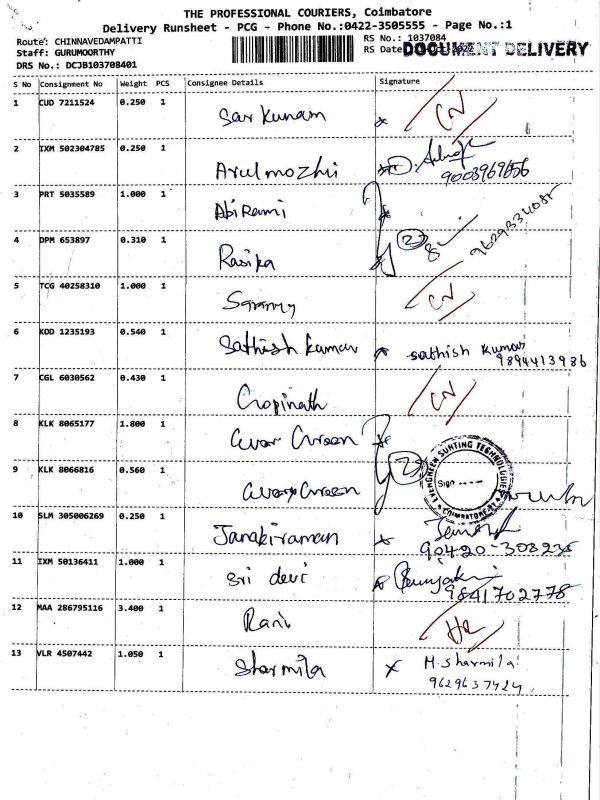 THE PROFESSIONAL COURIERS, Coimbatore
Delivery Runsheet - PCG - Phone No.:0422-3505555 - Page No.:1
Route: CHINNAVEDAMPATTI
Staff: GURUMOORTHY
DRS No.: DCJB103708401
RS No.: 1037084
RS Date
DOCUMENT DELIVERY
S No Consignment No Weight PCS Consignee Details Signature
1 CUD 7211524 0.250 1 Sarkunam x CN
2 IXM 502304785 0.250 1 Arulmozhi
9003969656
3 PRT 5035589 1.000 1 Abirami
4 DPM 653897 0.310 1 Rasika 2
5 TCG 40258310 1.000 1 CN
6 KOD 1235193 0.540 1 Sathish kumar sathish kumar
9894413986
7 CGL 6030562 0.430 1 Gopinath CN
8 KLK 8065177 1.800 1 Green
9 KLK 8066816 0.560 1 Green 2
EVERGREEN SUNTING TECHNOLOGIES
Sign ----
COIMBATORE
10 SLM 305006269 0.250 1 Janakiraman x
90420-308235
11 IXM 50136411 1.000 1 Sri devi
9841702778
12 MAA 286795116 3.400 1 Rani
13 VLR 4507442 1.050 1 Sharmila x M.Sharmila
9629637424